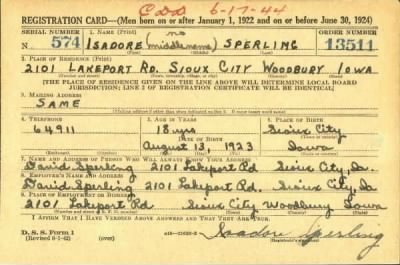 CDD 6-17-44
REGISTRATION CARD—(Men born on or after January 1, 1922 and on or before June 30, 1924)
SERIAL NUMBER 1. NAME (Print) ORDER NUMBER
N 574 ISADORE (no middle name) SPERLING 13511
(First) (Middle) (Last)
2. PLACE OF RESIDENCE (Print)
2101 LAKEPORT RD. SIOUX CITY WOODBURY IOWA
(Number and street) (Town, township, village, or city) (County) (State)
[THE PLACE OF RESIDENCE GIVEN ON THE LINE ABOVE WILL DETERMINE LOCAL BOARD
JURISDICTION; LINE 2 OF REGISTRATION CERTIFICATE WILL BE IDENTICAL]
3. MAILING ADDRESS
SAME
[Mailing address if other than place indicated on line 2. If same insert word same]
4. TELEPHONE 5. AGE IN YEARS 6. PLACE OF BIRTH
64911 18 yrs Sioux City
DATE OF BIRTH
August 13, 1923 Iowa
7. NAME AND ADDRESS OF PERSON WHO WILL ALWAYS KNOW YOUR ADDRESS
David Sperling 2101 Lakeport Rd Sioux City, Ia.
8. EMPLOYER'S NAME AND ADDRESS
David Sperling 2101 Lakeport Rd. Sioux City, Ia
9. PLACE OF EMPLOYMENT OR BUSINESS
2101 Lakeport Rd. Sioux City Woodbury Iowa
(Number and street or R. F. D. number) (Town) (County) (State)
I AFFIRM THAT I HAVE VERIFIED ABOVE ANSWERS AND THAT THEY ARE TRUE.
D. S. S. Form 1
(Revised 6-9-42) (over) Isadore Sperling
(Registrant's signature)